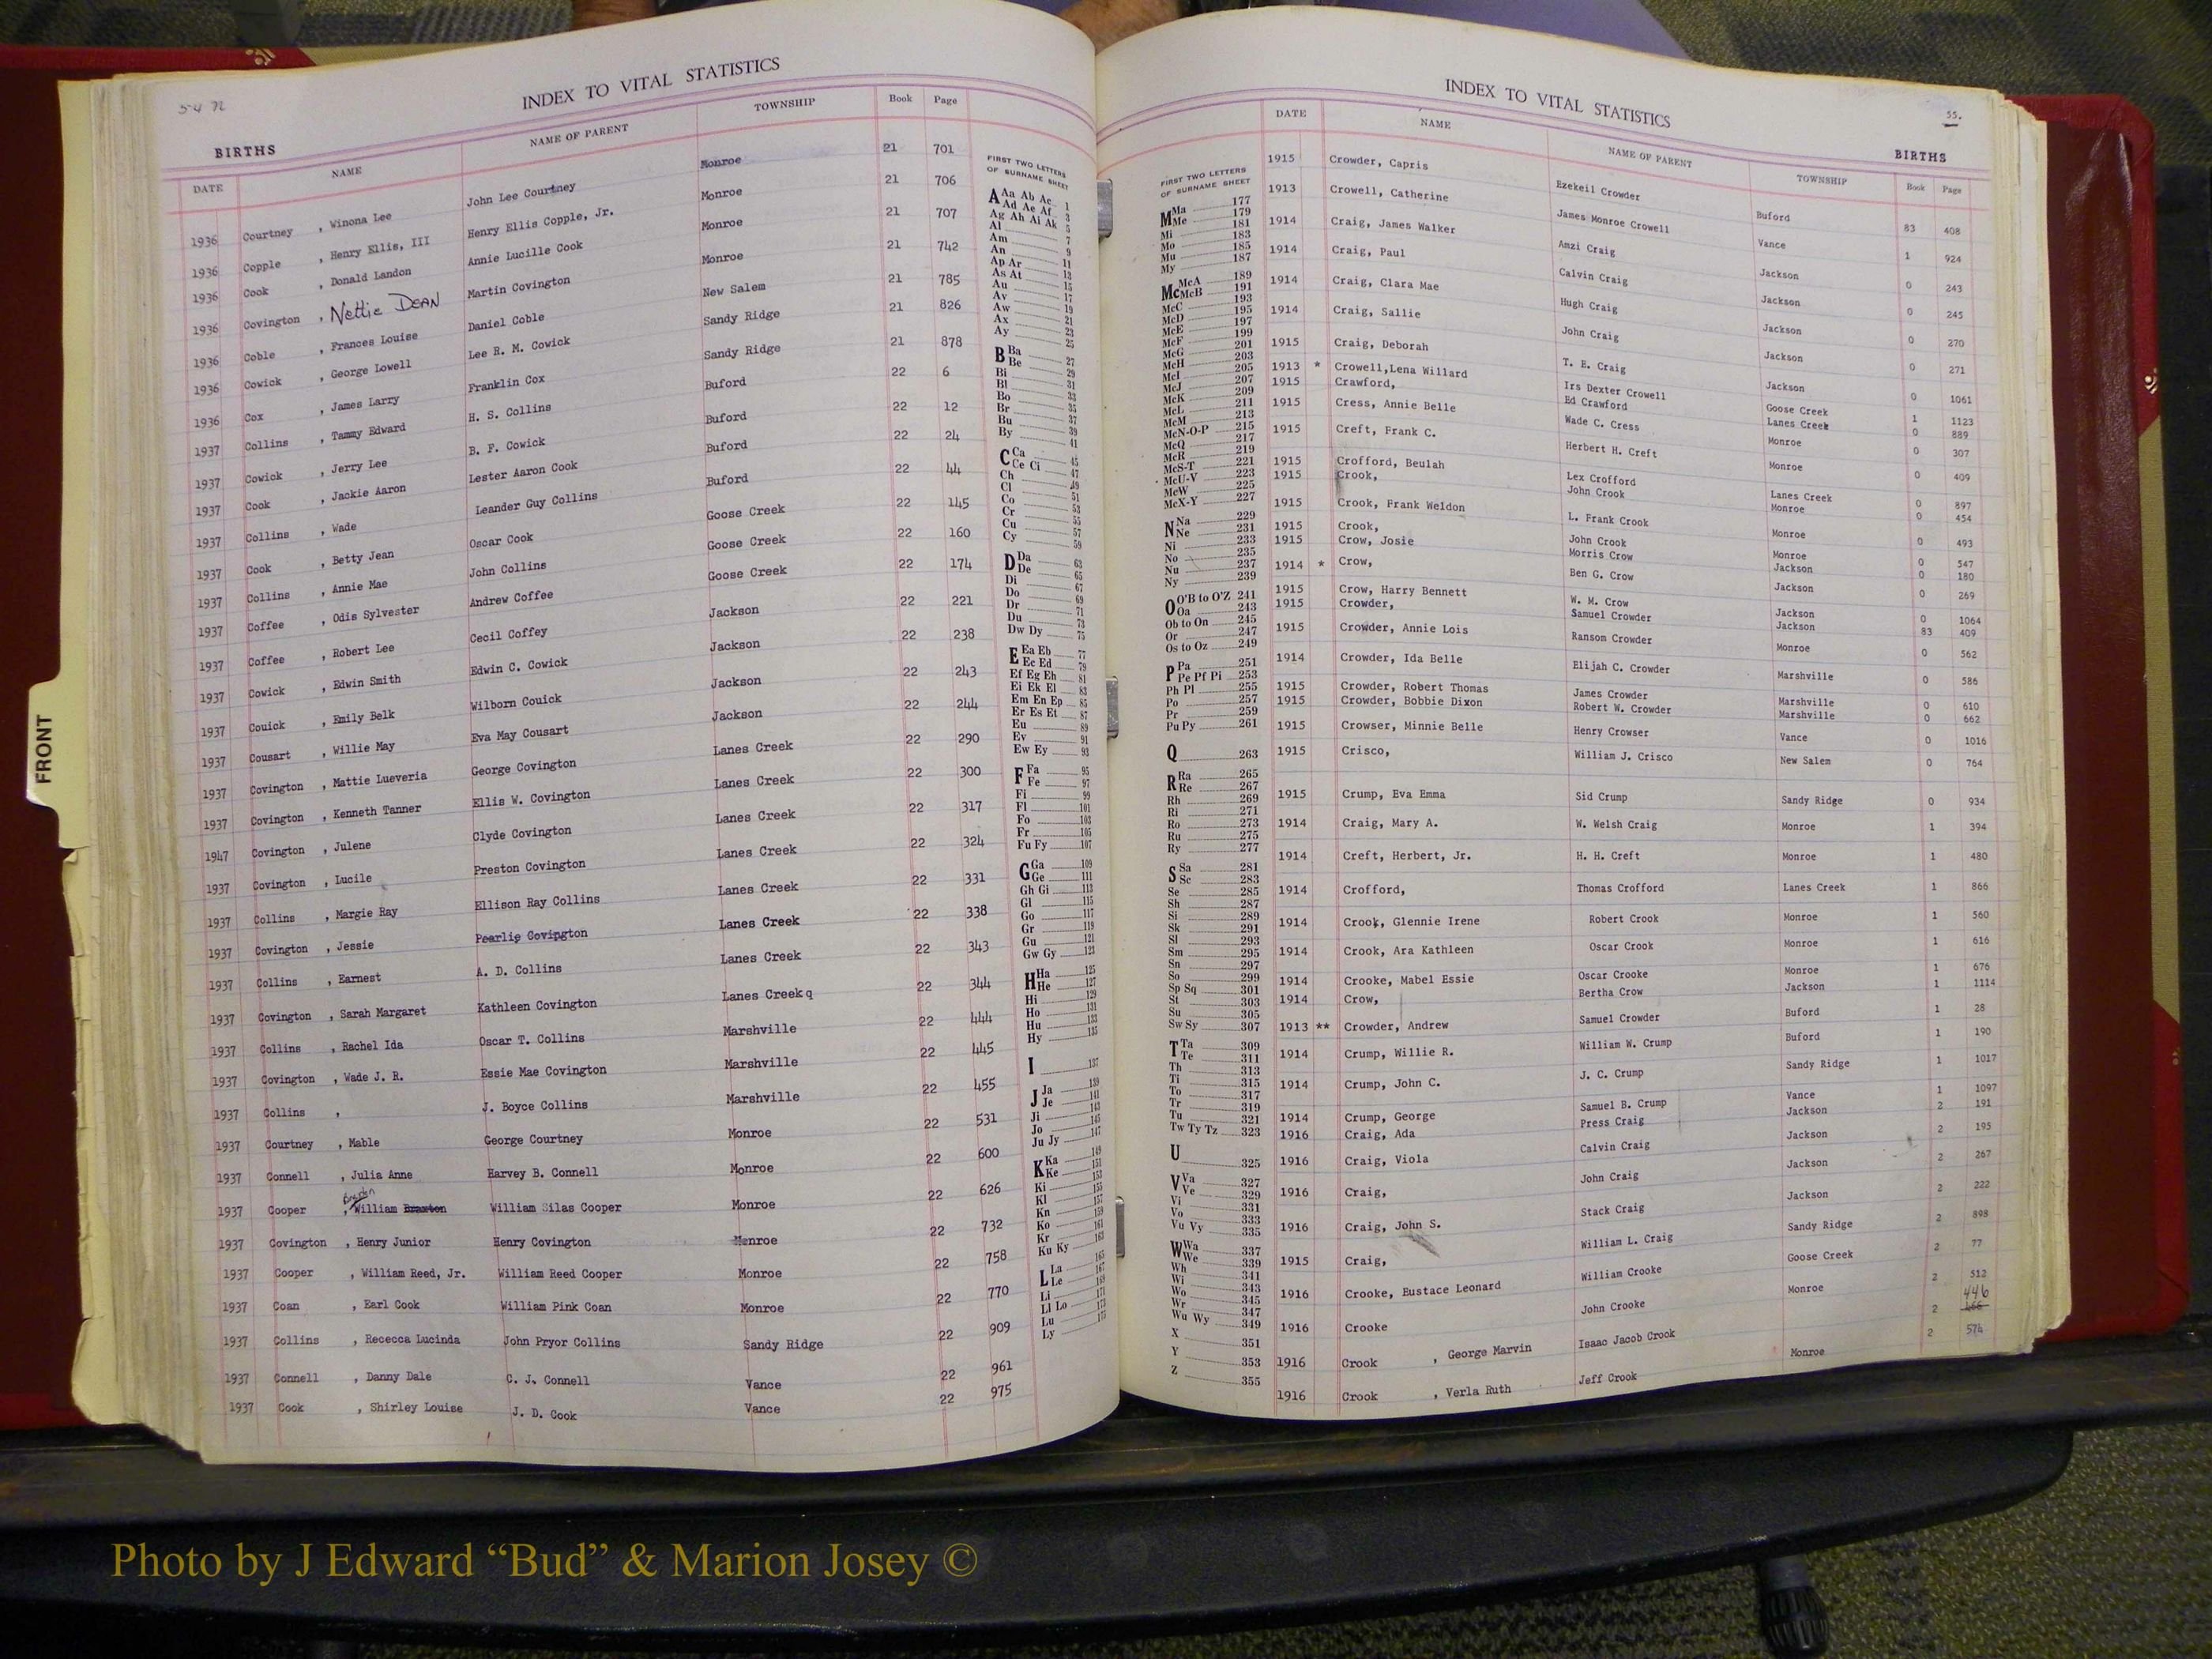 54 72
INDEX TO VITAL STATISTICS
BIRTHS
DATE NAME NAME OF PARENT TOWNSHIP Book Page
1936 Courtney , Winona Lee John Lee Courtney Monroe 21 701
1936 Copple , Henry Ellis, III Henry Ellis Copple, Jr. Monroe 21 706
1936 Cook , Donald Landon Annie Lucille Cook Monroe 21 707
1936 Covington , Nettie DEAN Martin Covington Monroe 21 742
1936 Coble , Frances Louise Daniel Coble New Salem 21 785
1936 Cowick , George Lowell Lee R. M. Cowick Sandy Ridge 21 826
1936 Cox , James Larry Franklin Cox Sandy Ridge 21 878
1937 Collins , Tammy Edward H. S. Collins Buford 22 6
1937 Cowick , Jerry Lee B. F. Cowick Buford 22 12
1937 Cook , Jackie Aaron Lester Aaron Cook Buford 22 24
1937 Collins , Wade Leander Guy Collins Buford 22 44
1937 Cook , Betty Jean Oscar Cook Goose Creek 22 145
1937 Collins , Annie Mae John Collins Goose Creek 22 160
1937 Coffee , Odis Sylvester Andrew Coffee Goose Creek 22 174
1937 Coffee , Robert Lee Cecil Coffey Jackson 22 221
1937 Cowick , Edwin Smith Edwin C. Cowick Jackson 22 238
1937 Couick , Emily Belk Wilborn Couick Jackson 22 243
1937 Cousart , Willie May Eva May Cousart Jackson 22 244
1937 Covington , Mattie Lueveria George Covington Lanes Creek 22 290
1937 Covington , Kenneth Tanner Ellis W. Covington Lanes Creek 22 300
1947 Covington , Julene Clyde Covington Lanes Creek 22 317
1937 Covington , Lucile Preston Covington Lanes Creek 22 324
1937 Collins , Margie Ray Ellison Ray Collins Lanes Creek 22 331
1937 Covington , Jessie Pearlie Covington Lanes Creek 22 338
1937 Collins , Earnest A. D. Collins Lanes Creek 22 343
1937 Covington , Sarah Margaret Kathleen Covington Lanes Creekq 22 344
1937 Collins , Rachel Ida Oscar T. Collins Marshville 22 444
1937 Covington , Wade J. R. Essie Mae Covington Marshville 22 445
1937 Collins , J. Boyce Collins Marshville 22 455
1937 Courtney , Mable George Courtney Monroe 22 531
1937 Connell , Julia Anne Harvey B. Connell Monroe 22 600
1937 Cooper , William Braxton William Silas Cooper Monroe 22 626
1937 Covington , Henry Junior Henry Covington Menroe 22 732
1937 Cooper , William Reed, Jr. William Reed Cooper Monroe 22 758
1937 Coan , Earl Cook William Pink Coan Monroe 22 770
1937 Collins , Rececca Lucinda John Pryor Collins Sandy Ridge 22 909
1937 Connell , Danny Dale C. J. Connell Vance 22 961
1937 Cook , Shirley Louise J. D. Cook Vance 22 975
FIRST TWO LETTERS
OF SURNAME SHEET
A Aa Ab Ac 1
Ad Ae Af 3
Ag Ah Ai Ak 5
Al 7
Am 9
An 11
Ap Ar 13
As At 15
Au 17
Av 19
Aw 21
Ax 23
Ay 25
B Ba 27
Be 29
Bi 31
Bl 33
Bo 35
Br 37
Bu 39
By 41
C Ca 45
Ce Ci 47
Ch 49
Cl 51
Co 53
Cr 55
Cu 57
Cy 59
D Da 63
De 65
Di 67
Do 69
Dr 71
Du 73
Dw Dy 75
E Ea Eb 77
Ec Ed 79
Ef Eg Eh 81
Ei Ek El 83
Em En Ep 85
Er Es Et 87
Eu 89
Ev 91
Ew Ey 93
F Fa 95
Fe 97
Fi 99
Fl 101
Fo 103
Fr 105
Fu Fy 107
G Ga 109
Ge 111
Gh Gi 113
Gl 115
Go 117
Gr 119
Gu 121
Gw Gy 123
H Ha 125
He 127
Hi 129
Ho 131
Hu 133
Hy 135
I 137
J Ja 139
Je 141
Ji 143
Jo 145
Ju Jy 147
K Ka 149
Ke 151
Ki 153
Kl 155
Kn 157
Ko 159
Kr 161
Ku Ky 163
L La 165
Le 167
Li 169
Ll Lo 171
Lu 173
Ly 175
FRONT
INDEX TO VITAL STATISTICS
55.
BIRTHS
FIRST TWO LETTERS
OF SURNAME SHEET
M Ma 177
Me 179
Mi 181
Mo 183
Mu 185
My 187
Mc McA 189
McB 191
McC 193
McD 195
McE 197
McF 199
McG 201
McH 203
McI 205
McJ 207
McK 209
McL 211
McM 213
McN-O-P 215
McQ 217
McR 219
McS-T 221
McU-V 223
McW 225
McX-Y 227
N Na 229
Ne 231
Ni 233
No 235
Nu 237
Ny 239
O O'B to O'Z 241
Oa 243
Ob to On 245
Or 247
Os to Oz 249
P Pa 251
Pe Pf Pi 253
Ph Pl 255
Po 257
Pr 259
Pu Py 261
Q 263
R Ra 265
Re 267
Rh 269
Ri 271
Ro 273
Ru 275
Ry 277
S Sa 281
Sc 283
Se 285
Sh 287
Si 289
Sk 291
Sl 293
Sm 295
Sn 297
So 299
Sp Sq 301
St 303
Su 305
Sw Sy 307
T Ta 309
Te 311
Th 313
Ti 315
To 317
Tr 319
Tu 321
Tw Ty Tz 323
U 325
V Va 327
Ve 329
Vi 331
Vo 333
Vu Vy 335
W Wa 337
We 339
Wh 341
Wi 343
Wo 345
Wr 347
Wu Wy 349
X 351
Y 353
Z 355
DATE NAME NAME OF PARENT TOWNSHIP Book Page
1915 Crowder, Capris Ezekeil Crowder Buford 83 408
1913 Crowell, Catherine James Monroe Crowell Vance 1 924
1914 Craig, James Walker Amzi Craig Jackson 0 243
1914 Craig, Paul Calvin Craig Jackson 0 245
1914 Craig, Clara Mae Hugh Craig Jackson 0 270
1914 Craig, Sallie John Craig Jackson 0 271
1915 Craig, Deborah T. E. Craig Jackson 0 1061
1913 * Crowell,Lena Willard Irs Dexter Crowell Goose Creek 1 1123
1915 Crawford, Ed Crawford Lanes Creek 0 889
1915 Cress, Annie Belle Wade C. Cress Monroe 0 307
1915 Creft, Frank C. Herbert H. Creft Monroe 0 409
1915 Crofford, Beulah Lex Crofford Lanes Creek 0 897
1915 Crook, John Crook Monroe 0 454
1915 Crook, Frank Weldon L. Frank Crook Monroe 0 493
1915 Crook, John Crook Monroe 0 547
1915 Crow, Josie Morris Crow Jackson 0 180
1914 * Crow, Ben G. Crow Jackson 0 269
1915 Crow, Harry Bennett W. M. Crow Jackson 0 1064
1915 Crowder, Samuel Crowder Jackson 83 409
1915 Crowder, Annie Lois Ransom Crowder Monroe 0 562
1914 Crowder, Ida Belle Elijah C. Crowder Marshville 0 586
1915 Crowder, Robert Thomas James Crowder Marshville 0 610
1915 Crowder, Bobbie Dixon Robert W. Crowder Marshville 0 662
1915 Crowser, Minnie Belle Henry Crowser Vance 0 1016
1915 Crisco, William J. Crisco New Salem 0 764
1915 Crump, Eva Emma Sid Crump Sandy Ridge 0 934
1914 Craig, Mary A. W. Welsh Craig Monroe 1 394
1914 Creft, Herbert, Jr. H. H. Creft Monroe 1 480
1914 Crofford, Thomas Crofford Lanes Creek 1 866
1914 Crook, Glennie Irene Robert Crook Monroe 1 560
1914 Crook, Ara Kathleen Oscar Crook Monroe 1 616
1914 Crooke, Mabel Essie Oscar Crooke Monroe 1 676
1914 Crow, Bertha Crow Jackson 1 1114
1913 ** Crowder, Andrew Samuel Crowder Buford 1 28
1914 Crump, Willie R. William W. Crump Buford 1 190
1914 Crump, John C. J. C. Crump Sandy Ridge 1 1017
1914 Crump, George Samuel B. Crump Vance 1 1097
1916 Craig, Ada Press Craig Jackson 2 191
1916 Craig, Viola Calvin Craig Jackson 2 195
1916 Craig, John Craig Jackson 2 267
1916 Craig, John S. Stack Craig Jackson 2 222
1915 Craig, William L. Craig Sandy Ridge 2 898
1916 Crooke, Eustace Leonard William Crooke Goose Creek 2 77
1916 Crooke John Crooke Monroe 2 512
1916 Crook , George Marvin Isaac Jacob Crook 2 446
1916 Crook , Verla Ruth Jeff Crook Monroe 2 574
Photo by J Edward “Bud” & Marion Josey ©